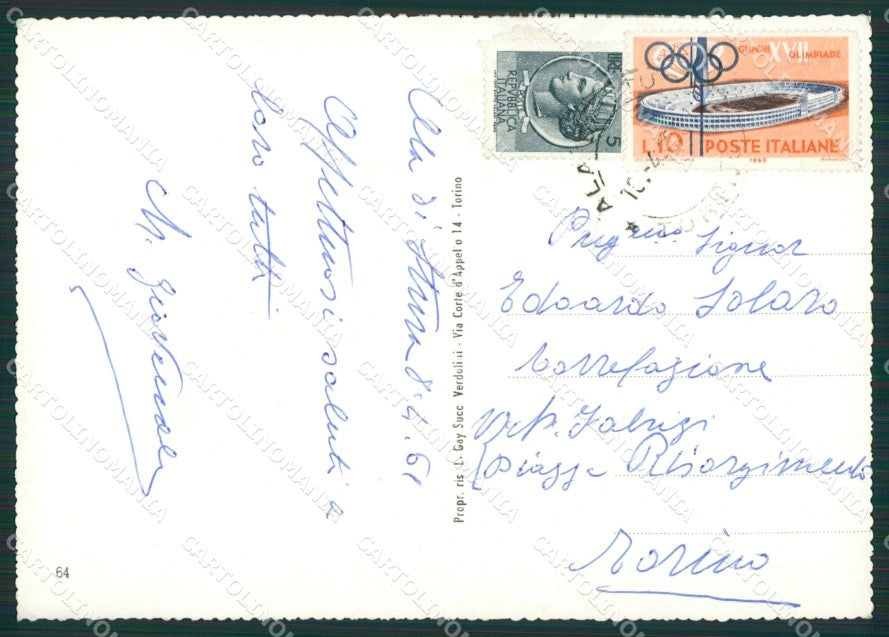 Ala di Stura 8.4.61
Affettuosi saluti a
loro tutti
64
Propr. ris. L. Gay Succ. Verdolini - Via Corte d'Appello 14 - Torino
LIRE 5
REPVBBLICA
ITALIANA
GIUOCHI XVII OLIMPIADE
L.10 POSTE ITALIANE
1960
ALA
Signor
Edoardo Solaro
Torrefazione
Via N. Fabrizi
(Piazza Risorgimento
Torino
CARTOLINOMANIA